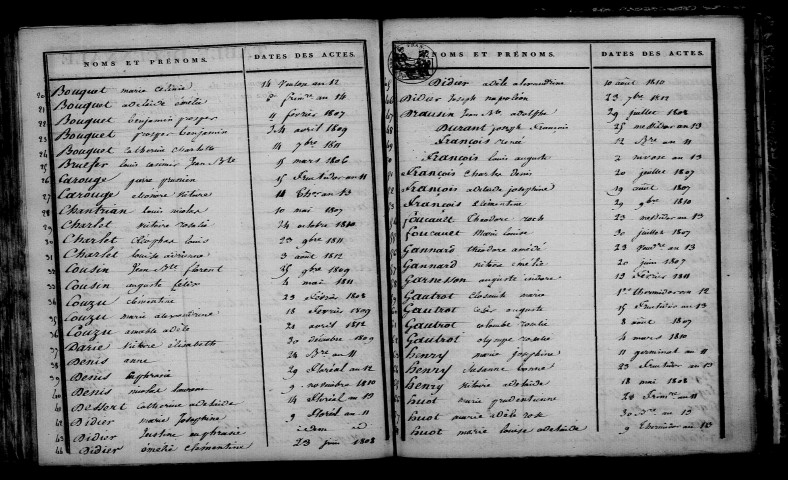 NOMS ET PRÉNOMS.
DATES DES ACTES.
20 Bouquet marie célinie 14 Ventose an 12
21 Bouquet adelaïde émélie an 14
22 Bouquet benjamin prosper 11 février 1807
23 Bouquet prosper benjamin 24 avril 1809
24 Bouquet Catherine Charlotte 14 7bre 1811
25 Bruefer louis casimir Jean Bte 15 mars 1806
26 Carouge 15 fructidor an 11
27 Carouge éléonore victoire an 13
28 Chantrian louis nicolas 10 mai 1807
29 Charlet victoire rosalie 24 octobre 1810
30 Charlet Cléophas louis 23 9bre 1811
31 Charlet louise adrienne 3 août 1812
32 Cousin Jean Bte florent 25 9bre 1809
33 Cousin auguste felix 4 mai 1811
34 Couzu clementine 23 février 1808
35 Couzu marie alexandrine 18 février 1809
36 Couzu aimable adèle 21 avril 1812
37 Darie victoire élisabeth 30 décembre 1809
38 Denis anne 24 Bre an 11
39 Denis euphrasie 29 floréal an 12
40 Denis nicolas laurent 9 novembre 1810
41 Dessort catherine adélaïde 14 floréal an 13
42 Didier marie Josephine 9 floréal an 11
43 Didier Justine euphrasie idem id
44 Didier émélie clementine 23 juin 1808
NOMS ET PRÉNOMS.
DATES DES ACTES.
45 Didier adèle alexandrine 10 août 1810
46 Didier Joseph napoléon 23 7bre 1812
47 Drausin Jean Bte adolphe 29 juillet 1808
48 Durant joseph françois 25 messidor an 13
François renée 12 Bre an 11
François louis auguste 2 nivose an 13
François Charles denis 20 juillet 1807
François adelaide josephine 29 août 1807
François clémentine 24 9bre 1810
foucault Theodore roch 23 messidor an 13
foucault Marie louise 30 juillet 1807
Gannard théodore amédé 23 Vendre an 13
Gannard victoire émélie 20 juin 1807
Garnesson auguste isidore 13 février 1811
Gautrot clesmite marie 1er thermidor an 12
Gautrot césar auguste 15 fructidor an 13
Gautrot colombe rosalie 8 août 1807
Gautrot olympe rosalie 4 mars 1810
henry marie josephine 11 germinal an 11
henry susanne bonne 23 fructidor an 13
henry victoire adelaide 18 mai 1808
huot marie prudentienne an 11
huot marie adèle rose 30 Bre an 13
huot marie louise adelaide 9 thermidor an 13